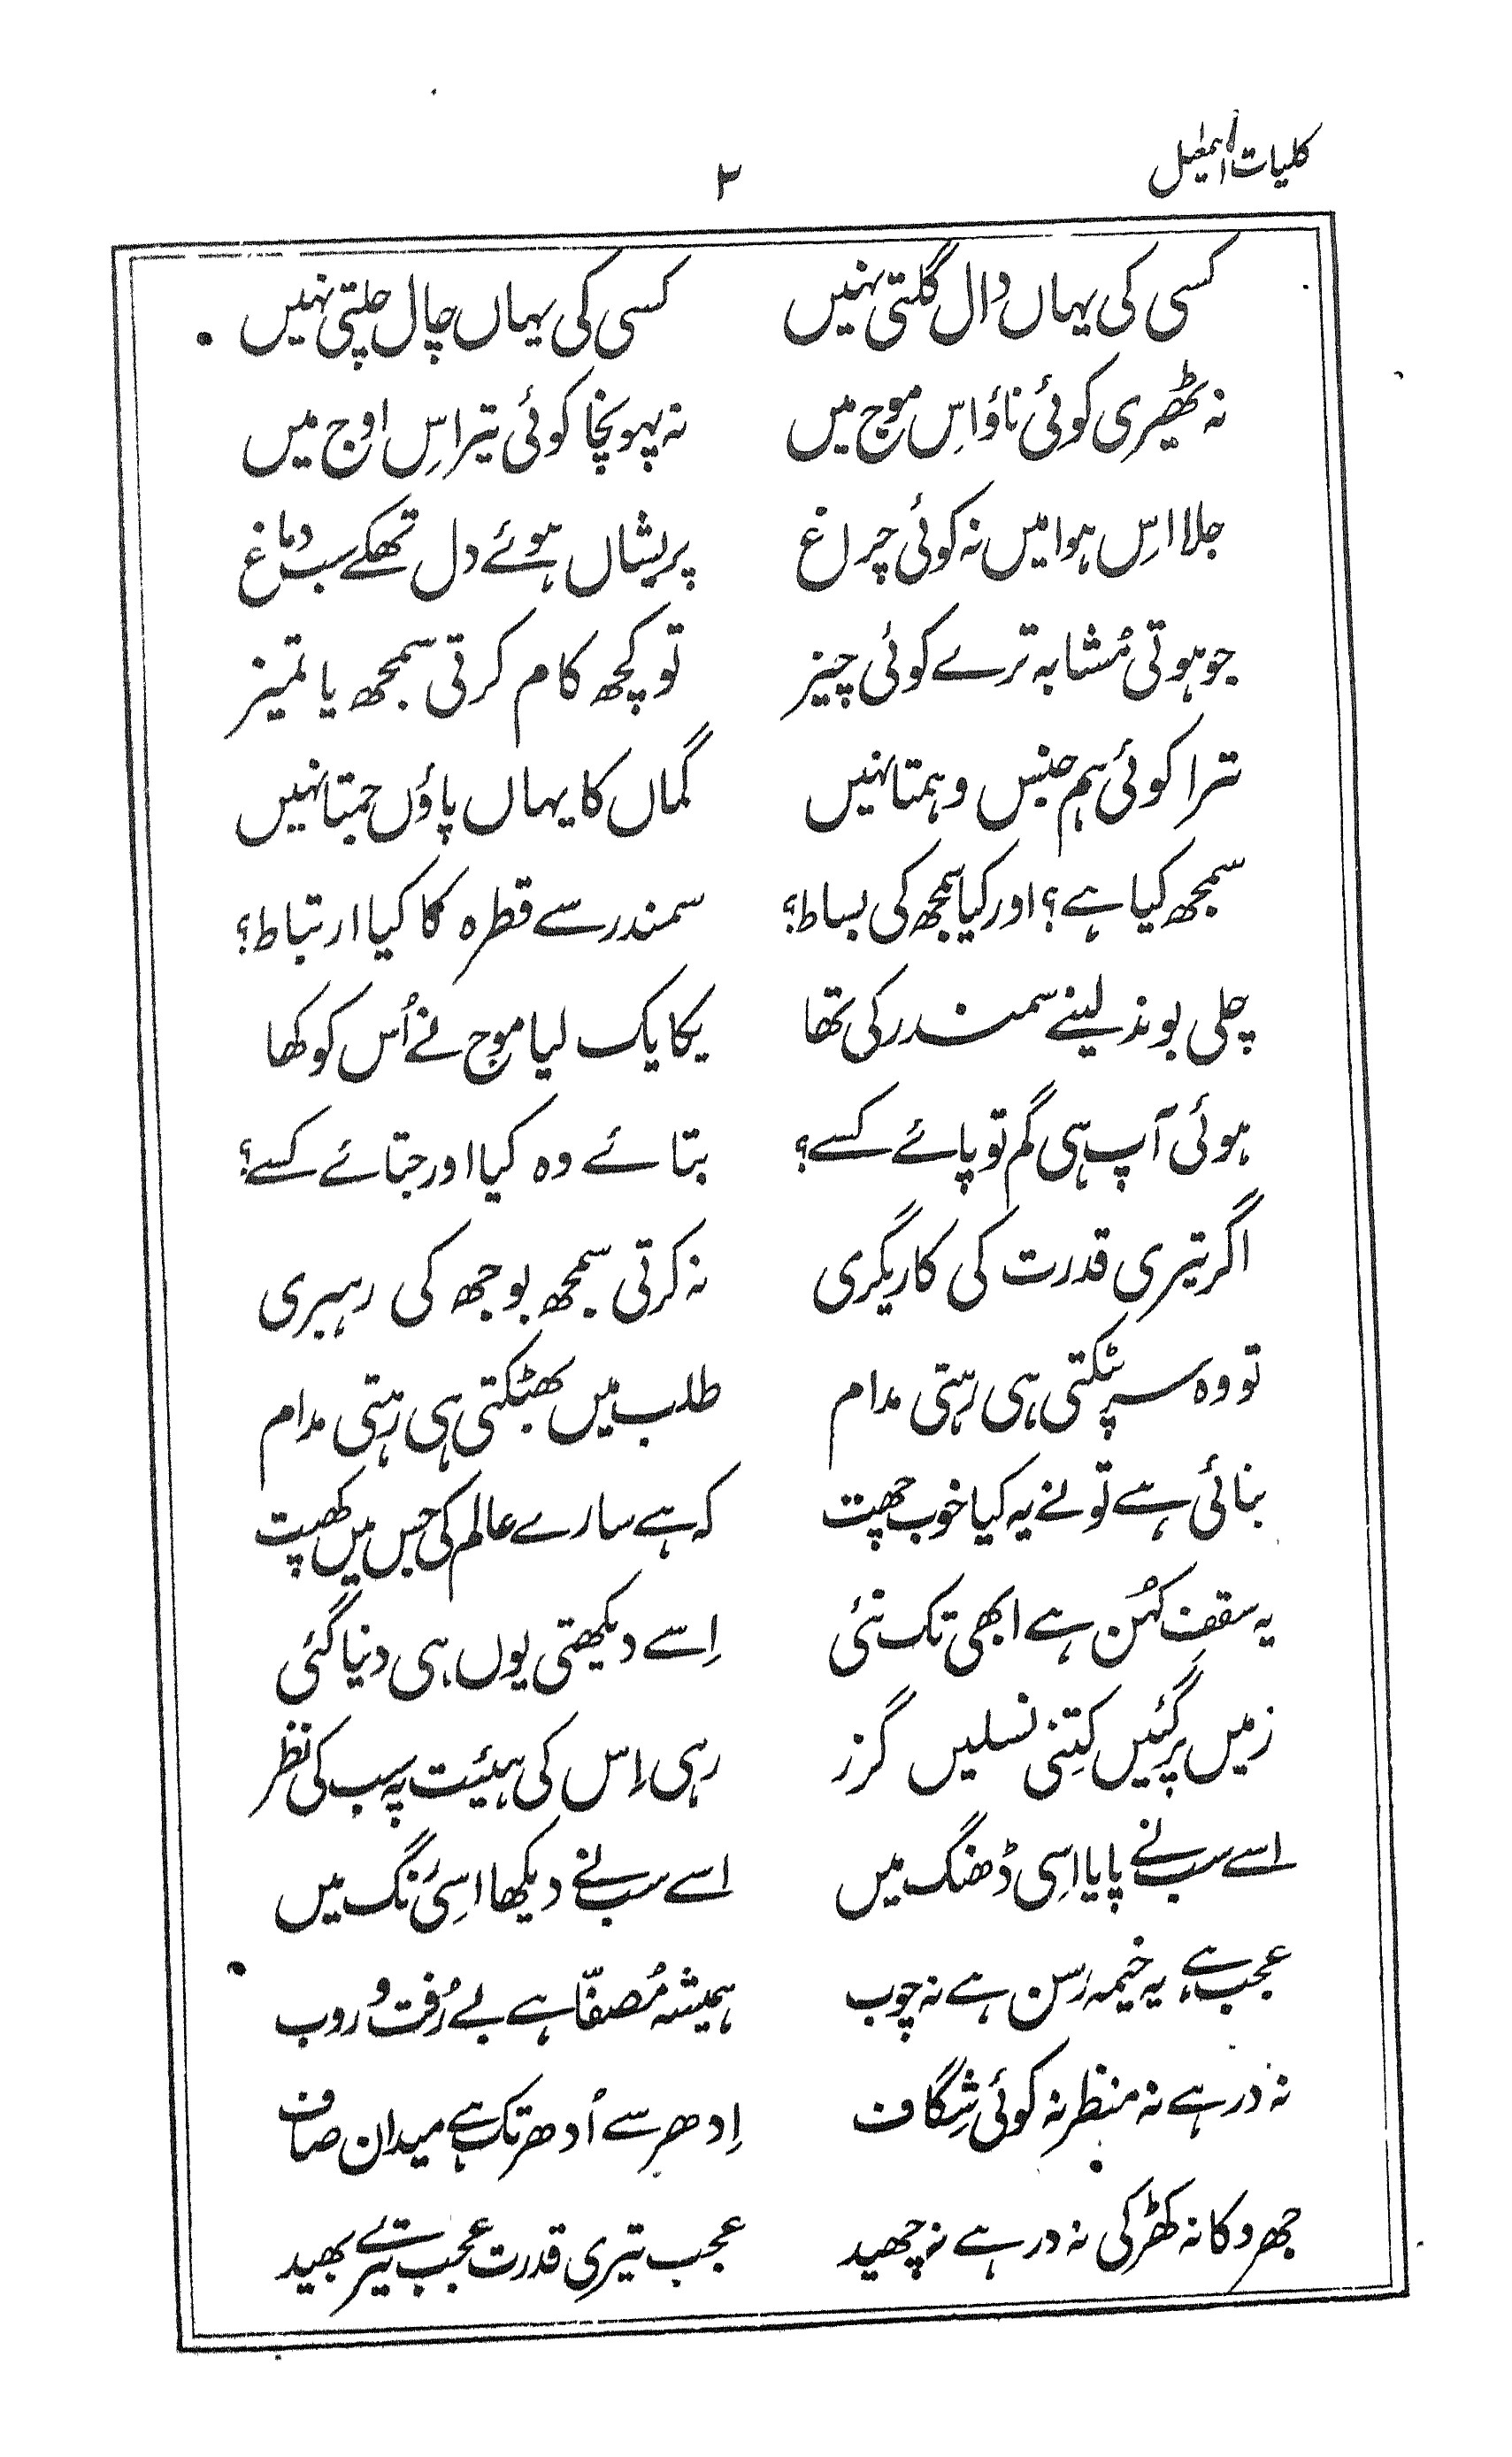 کلیات اسمٰعیل
۳
کسی کی یہاں دال گلتی نہیں کسی کی یہاں چال چلتی نہیں
نہ ٹھیری کوئی ناؤ اِس موج میں نہ پہونچا کوئی تیر اِس اوج میں
جلا اِس ہوا میں نہ کوئی چراغ پریشاں ہوئے دل تھکے سب دماغ
جو ہوتی مُشابہ ترے کوئی چیز تو کچھ کام کرتی سمجھ یا تمیز
ترا کوئی ہم جنس و ہمتا نہیں گماں کا یہاں پاؤں جمتا نہیں
سمجھ کیا ہے؟ اور کیا سمجھ کی بساط؟ سمندر سے قطرہ کا کیا ارتباط؟
چلی بوند لینے سمندر کی تھا یکایک لیا موج نے اُس کو کھا
ہوئی آپ ہی گم تو پائے کسے؟ بتائے وہ کیا اور جتائے کسے؟
اگر تیری قدرت کی کاریگری نہ کرتی سمجھ بوجھ کی رہبری
تو وہ سر پٹکتی ہی رہتی مدام طلب میں بھٹکتی ہی رہتی مدام
بنائی ہے تو نے یہ کیا خوب چھت کہ ہے سارے عالم کی جس میں کھپت
یہ سقفِ کہُن ہے ابھی تک نئی اِسے دیکھتی یوں ہی دنیا گئی
زمیں پر گئیں کِتنی نسلیں گزر رہی اِس کی ہیئت پہ سب کی نظر
اسے سب نے پایا اِسی ڈھنگ میں اسے سب نے دیکھا اسِی رنگ میں
عجب ہے یہ خیمہ رَسن ہے نہ چوب ہمیشہ مُصفّا ہے بے رُفت و روب
نہ در ہے نہ منظر نہ کوئی شِگاف اِدھر سے اُدھر تک ہے میدان صاف
جھروکا نہ کھڑکی نہ در ہے نہ چھید عجب تیری قدرت عجب تیرے بھید